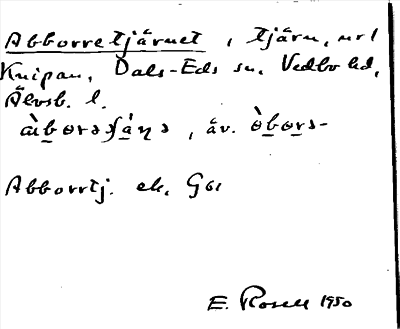 Abborretjärnet, tjärn, nrl
Knipan, Dals-Eds sn. Vedbo hd,
Älvsb. l.
av. òbo̱rs-
Abborrtj. ek. G61
E. Rosell 1950